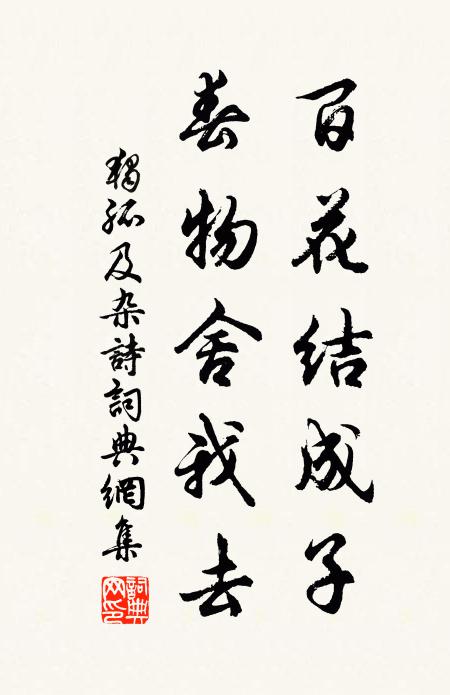 百花结成子
春物舍我去
獨孤及杂詩詞典網集
詞典网印